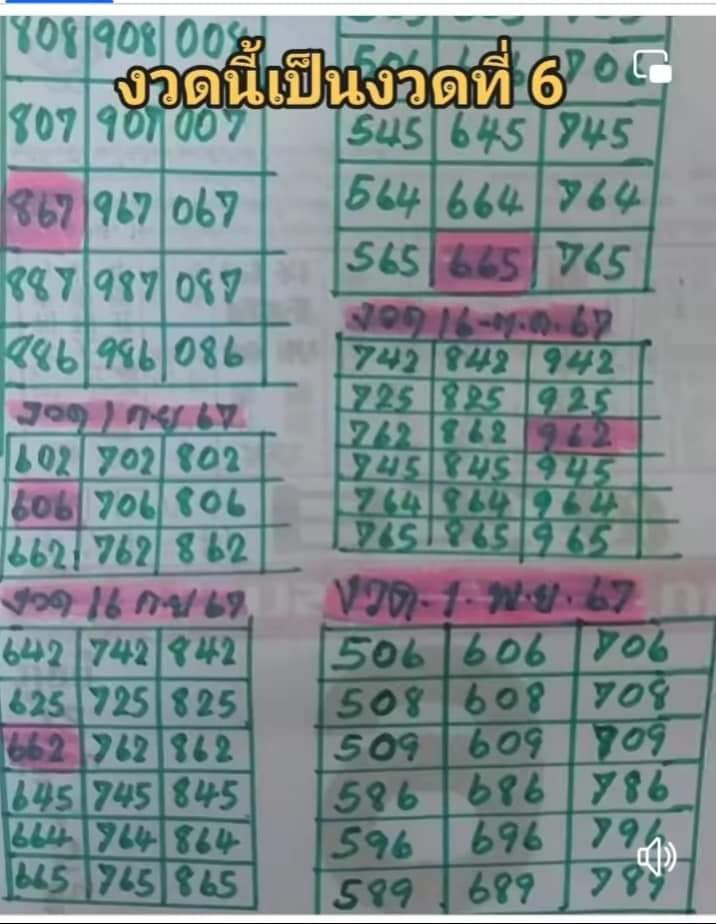 808 908 008
งวดนี้เป็นงวดที่ 6
807 907 007
867 967 067
887 987 087
886 986 086
งวด 1 กย 67
602 702 802
606 706 806
662 762 862
งวด 16 กย 67
642 742 842
625 725 825
662 762 862
645 745 845
664 764 864
665 765 865
545 645 745
564 664 764
565 665 765
งวด 16-ต.ค. 67
742 842 942
725 825 925
762 862 962
745 845 945
764 864 964
765 865 965
งวด. 1. พ.ย. 67
506 606 706
508 608 708
509 609 709
586 686 786
596 696 796
589 689 789